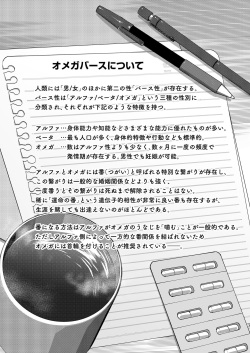 オメガバースについて
人類には「男/女」のほかに第二の性「バース性」が存在する。
バース性は「アルファ/ベータ/オメガ」という三種の性別に
分類され、それぞれが下記のような特徴を持つ。
アルファ…身体能力や知能などさまざまな能力に優れたものが多い。
ベータ…最も人口が多く、身体的特徴や行動なども標準的。
オメガ…数はアルファ性よりも少なく、数ヶ月に一度の頻度で
発情期が存在する。男性でも妊娠が可能。
アルファとオメガには番(つがい)と呼ばれる特別な繋りが存在し、
この繋がりは一般的な婚姻関係などよりも強く、
一度番うとその繋がりは死ぬまで解除されることはない。
稀に「運命の番」という遺伝子的相性が非常に良い番も存在するが、
生涯を賭しても出逢えないのがほとんどである。
番になる方法はアルファがオメガのうなじを「噛む」ことが一般的である。
ただしアルファ側によって一方的な番関係を結ばれないため
オメガには首輪を付けることが推奨されている――